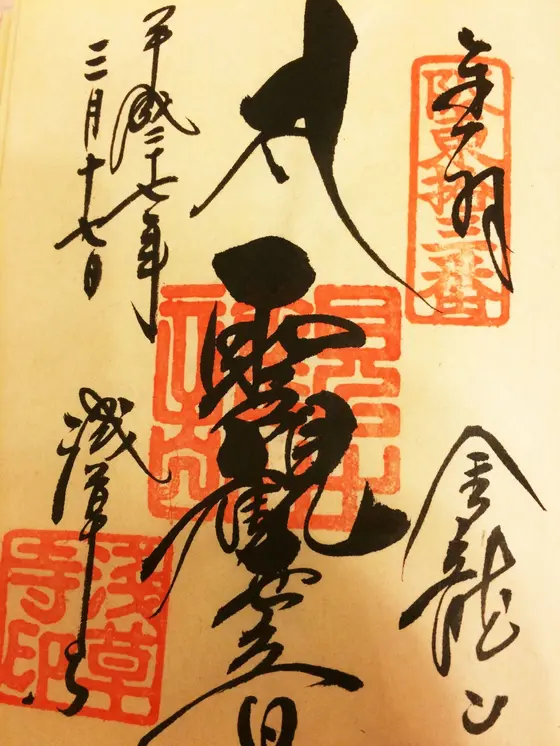 奉拝
阪東拾三番
金龍山
聖觀世音
平成二十七年
三月十七日
浅草寺
浅草寺印